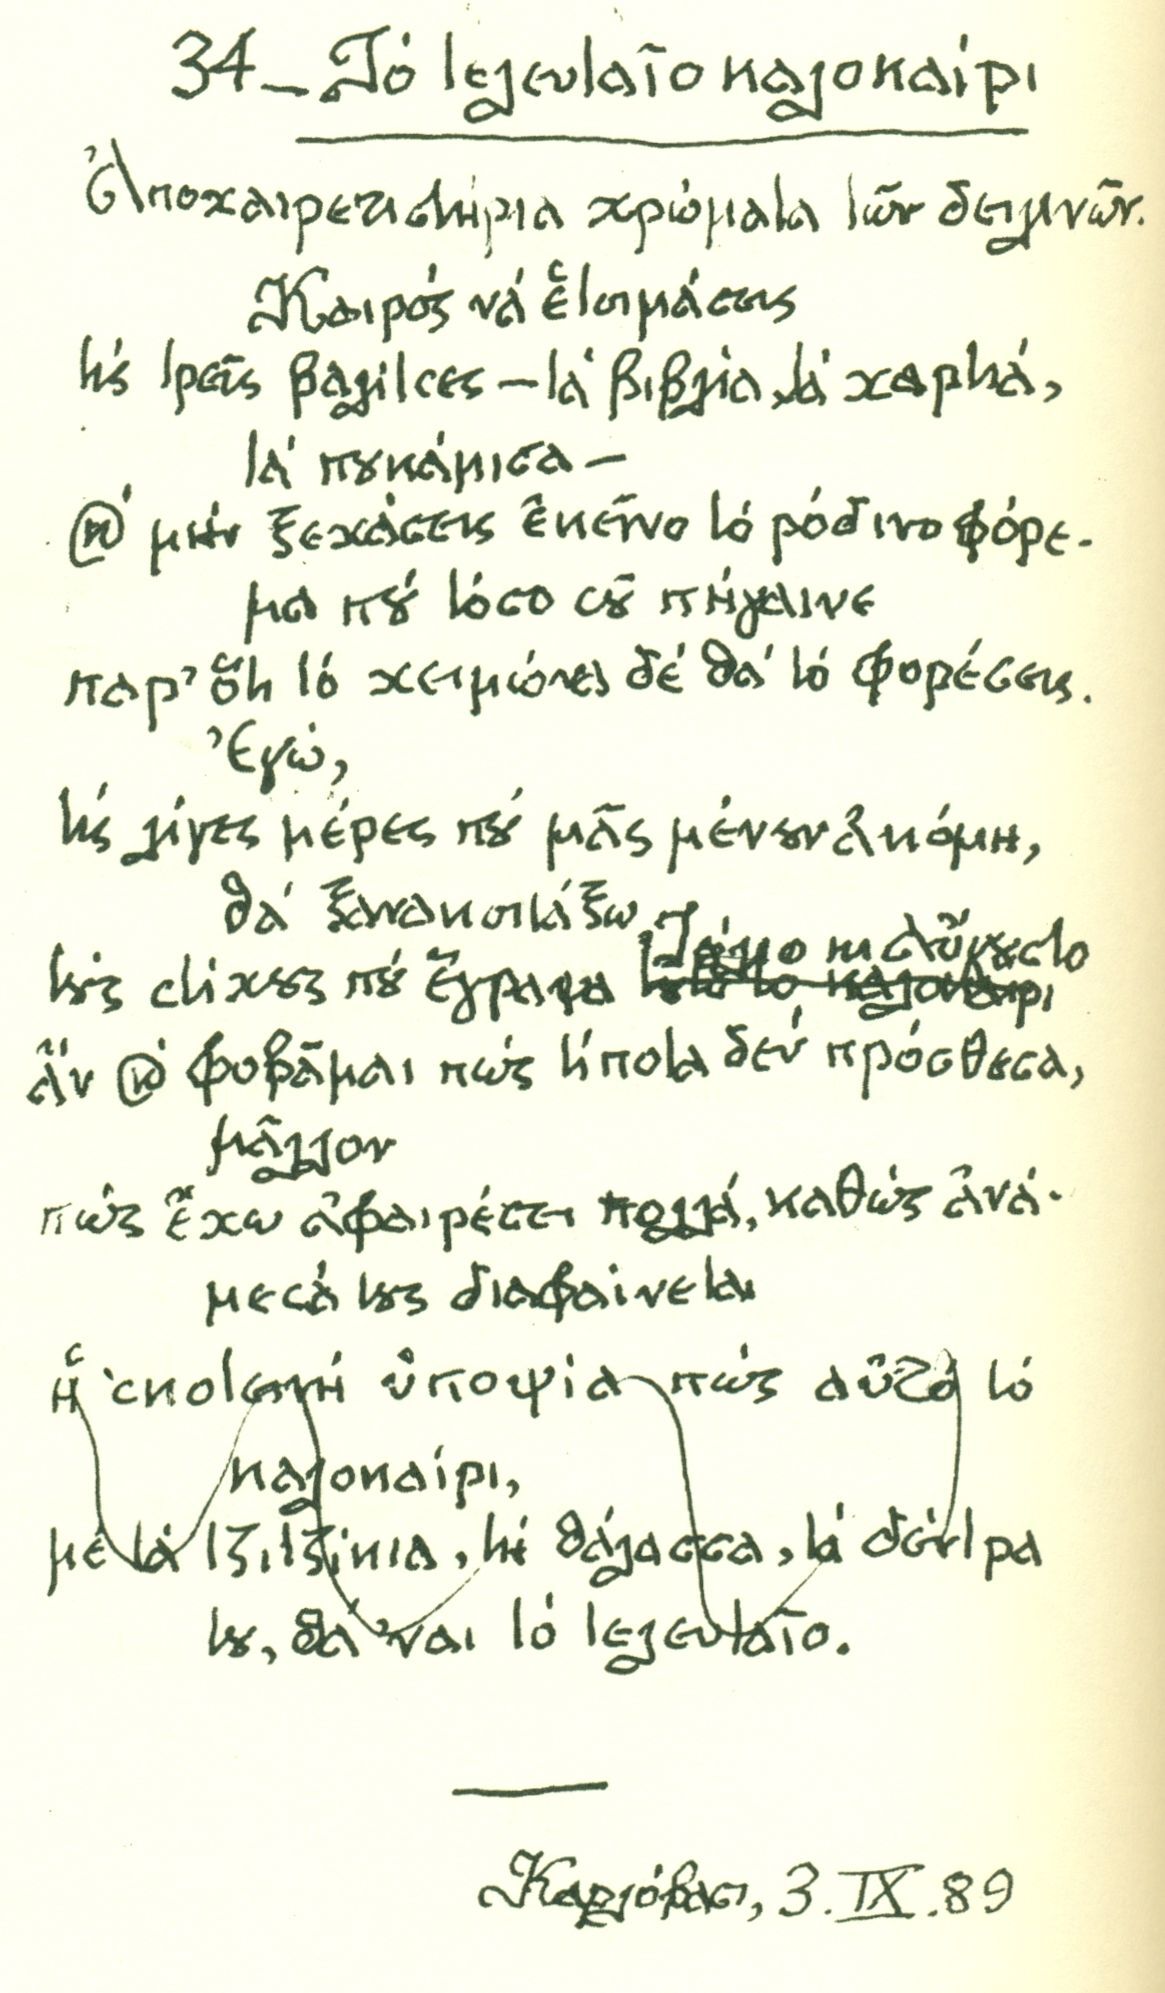 34 – Τό τελευταῖο καλοκαίρι
Ἀποχαιρετιστήρια χρώματα τῶν δειλινῶν.
Καιρός νά ἑτοιμάσεις
τίς τρεῖς βαλίτσες – τά βιβλία, τά χαρτιά,
τά πουκάμισα –
καί μήν ξεχάσεις ἐκεῖνο τό ρόδινο φόρε-
μα πού τόσο σοῦ πήγαινε
παρ’ ὅτι τό χειμώνα δέ θά τό φορέσεις.
Ἐγώ,
τίς λίγες μέρες πού μᾶς μένουν ἀκόμη,
θά ξανακοιτάξω
τούς στίχους πού ἔγραψα Ἰούλιο κι Αὔγουστο
ἄν καί φοβᾶμαι πώς τίποτα δέν πρόσθεσα,
μᾶλλον
πώς ἔχω ἀφαιρέσει πολλά, καθώς ἀνά-
μεσά τους διαφαίνεται
ἡ σκοτεινή ὑποψία πώς αὐτό τό
καλοκαίρι,
μέ τά τζιτζίκια, τή θάλασσα, τά δέντρα
του, θά ’ναι τό τελευταῖο.
Καρλόβασι, 3.IX.89